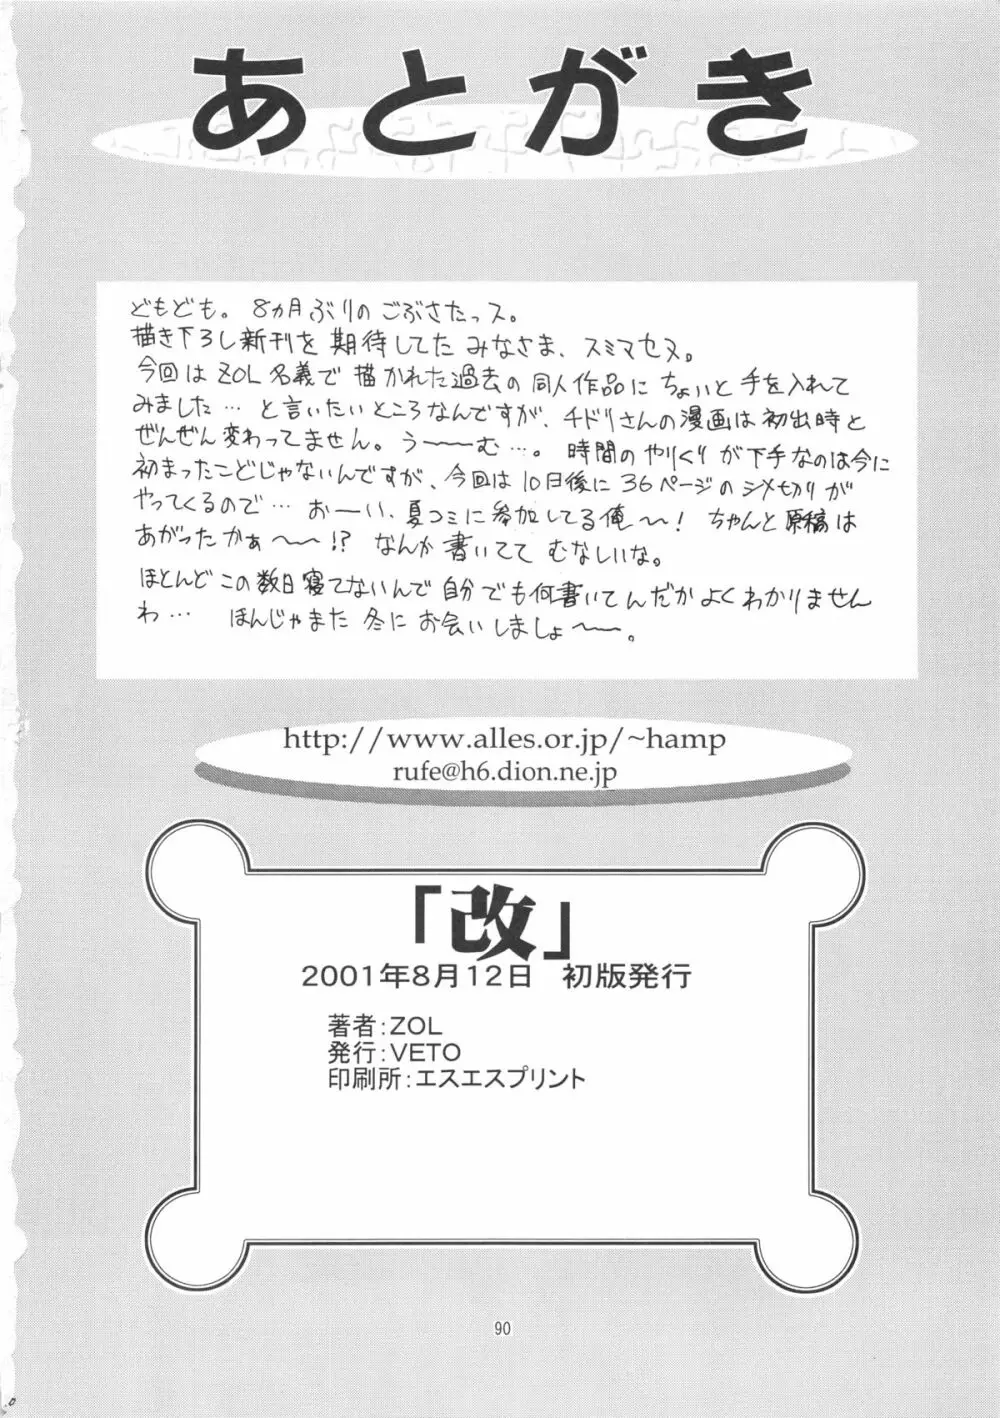 あとがき
どもども。8ヵ月ぶりのごぶさたっス。
描き下ろし新刊を期待してたみなさま、スミマセヌ。
今回はZOL名義で描かれた過去の同人作品にちょいと手を入れて
みました…と言いたいところなんですが、チドリさんの漫画は初出時と
ぜんぜん変わってません。う〜〜む…。時間のやりくりが下手なのは今に
初まったこどじゃないんですが、今回は10日後に36ページのシメ切りが
やってくるので…おーい、夏コミに参加してる俺〜!ちゃんと原稿は
あがったかぁ〜〜!?なんか書いててむなしいな。
ほとんどこの数日寝てないんで自分でも何書いてんだかよくわかりません
わ…ほんじゃまた冬にお会いしましょ〜〜。
http://www.alles.or.jp/~hamp
rufe@h6.dion.ne.jp
「改」
2001年8月12日 初版発行
著者:ZOL
発行:VETO
印刷所:エスエスプリント
90